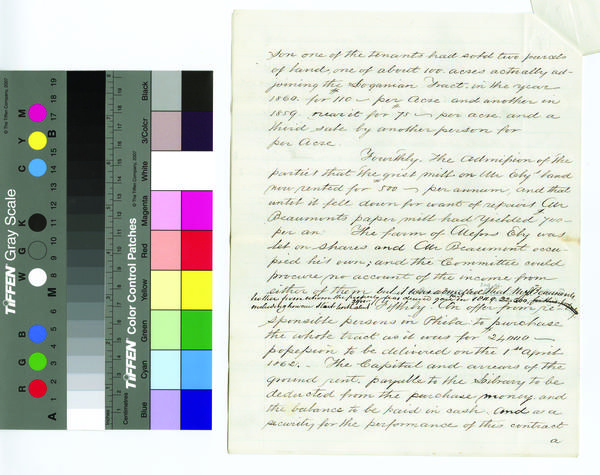 © The Tiffen Company, 2007
TIFFEN Gray Scale
R G B W G K C Y M
A M B
1 2 3 4 5 6 7 8 9 10 11 12 13 14 15 16 17 18 19
© The Tiffen Company, 2007
TIFFEN Color Control Patches
Centimetres
Blue
Cyan
Green
Yellow
Red
Magenta
White
3/Color
Black
son one of the tenants had sold two parcels
of land, one of about 100 acres actually ad-
joining the Loganian Tract, in the year
1860. for $110 – per Acre and another in
1859. near it for $75 – per acre and a
third sale by another person for
per Acre
Fourthly. The admission of the
parties that the grist mill on Mr Eby's land
now rented for 500 – per annum, and that
until it fell down for want of repairs Mr
Beaumonts paper mill had yielded $700 –
per an The farm of Messrs Eby was
let on shares and Mr Beaumont occu
pied his own; and the Committee could
procure no account of the income from
either of them but it was admitted that Mr Beaumonts
father from whom the property was
Fifthly. An offer from re-
sponsible persons in Philada to purchase
the whole tract as it was for $24,000 –
possession to be delivered on the 1st April
1862. – The Capital and arrears of the
ground rent, payable to the Library to be
deducted from the purchase money and
the balance to be paid in cash. And as a
security for the performance of this contract
a